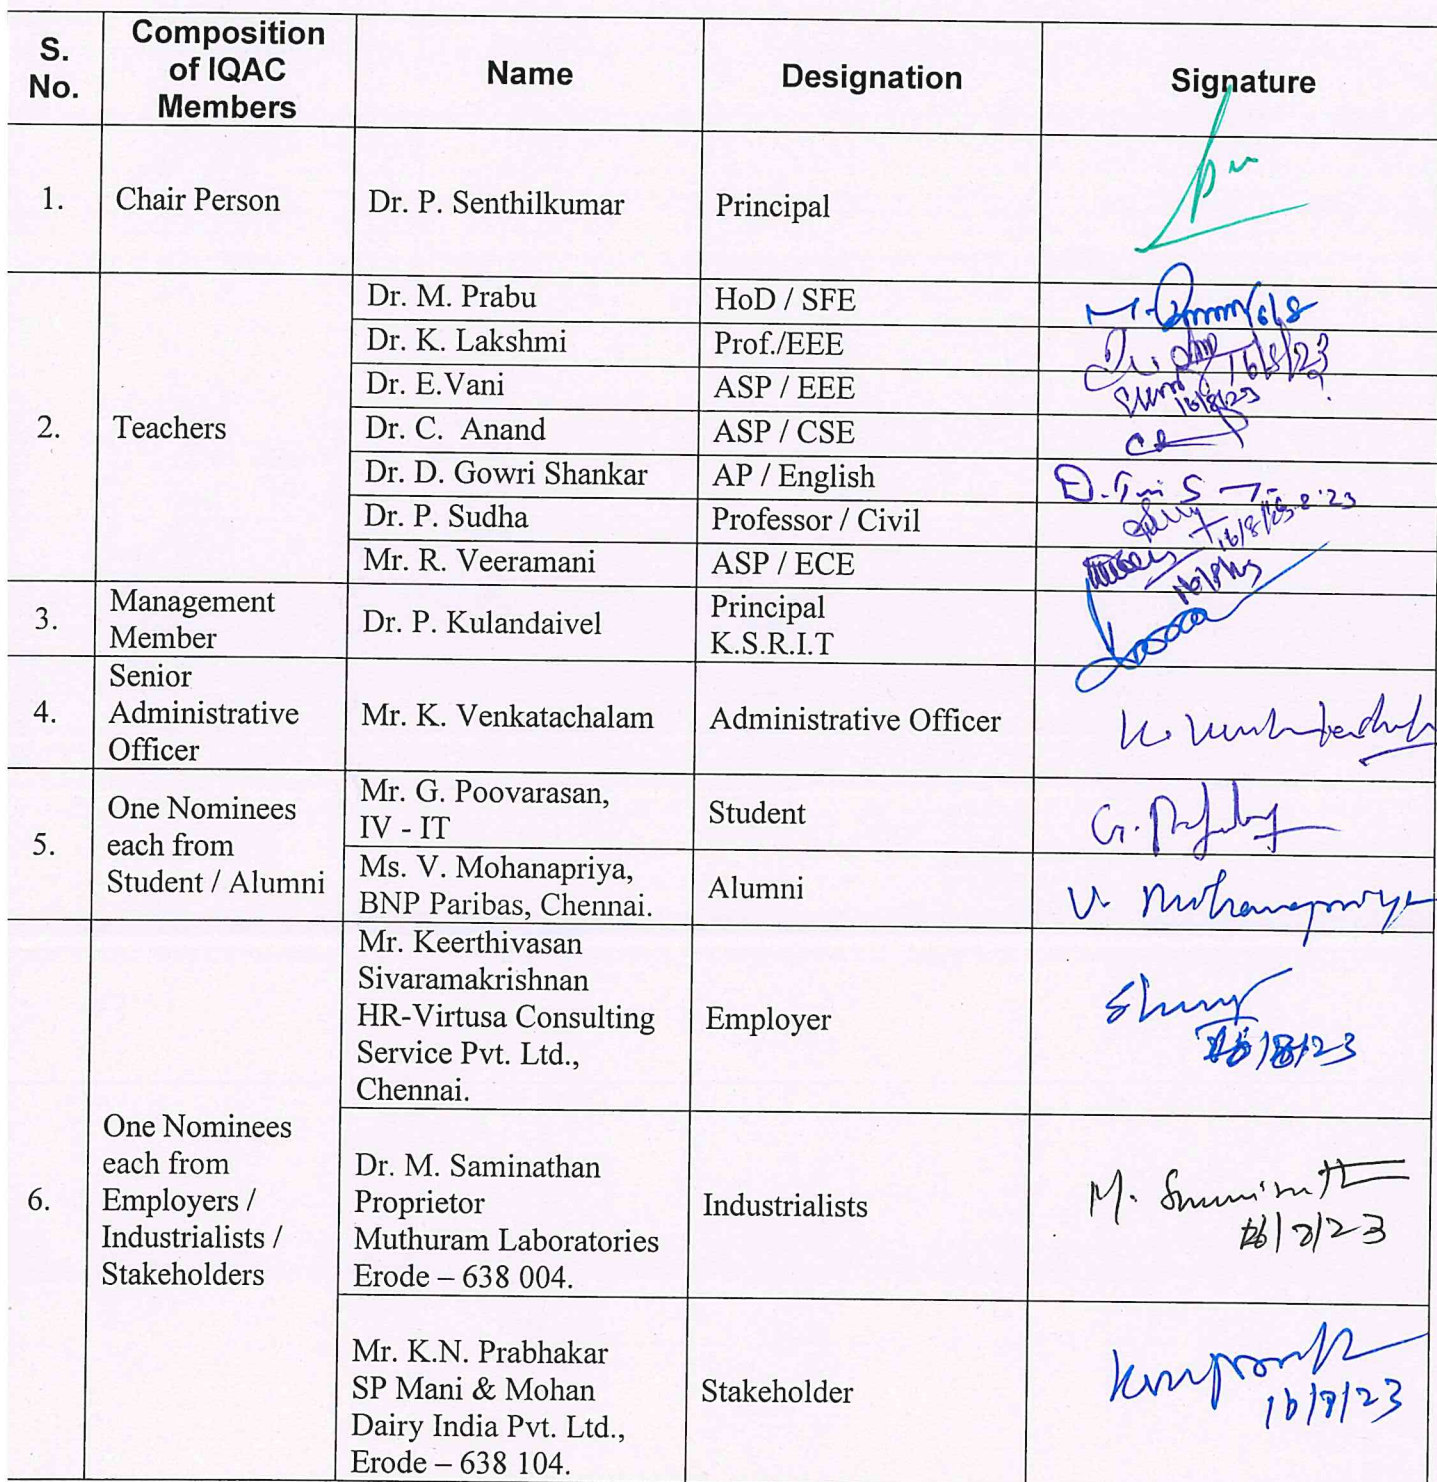 S. No.
Composition of IQAC Members
Name
Designation
Signature
1.
Chair Person
Dr. P. Senthilkumar
Principal
2.
Teachers
Dr. M. Prabu
HoD / SFE
Dr. K. Lakshmi
Prof./EEE
16/8/23
Dr. E.Vani
ASP / EEE
16/8/23
Dr. C. Anand
ASP / CSE
Dr. D. Gowri Shankar
AP / English
Dr. P. Sudha
Professor / Civil
16/8/23
Mr. R. Veeramani
ASP / ECE
16/8/23
3.
Management
Member
Dr. P. Kulandaivel
Principal
K.S.R.I.T
4.
Senior
Administrative
Officer
Mr. K. Venkatachalam
Administrative Officer
5.
One Nominees
each from
Student / Alumni
Mr. G. Poovarasan,
IV - IT
Student
Ms. V. Mohanapriya,
BNP Paribas, Chennai.
Alumni
V. Mohanapriya
6.
One Nominees
each from
Employers /
Industrialists /
Stakeholders
Mr. Keerthivasan
Sivaramakrishnan
HR-Virtusa Consulting
Service Pvt. Ltd.,
Chennai.
Employer
Dr. M. Saminathan
Proprietor
Muthuram Laboratories
Erode – 638 004.
Industrialists
16/8/23
Mr. K.N. Prabhakar
SP Mani & Mohan
Dairy India Pvt. Ltd.,
Erode – 638 104.
Stakeholder
16/8/23